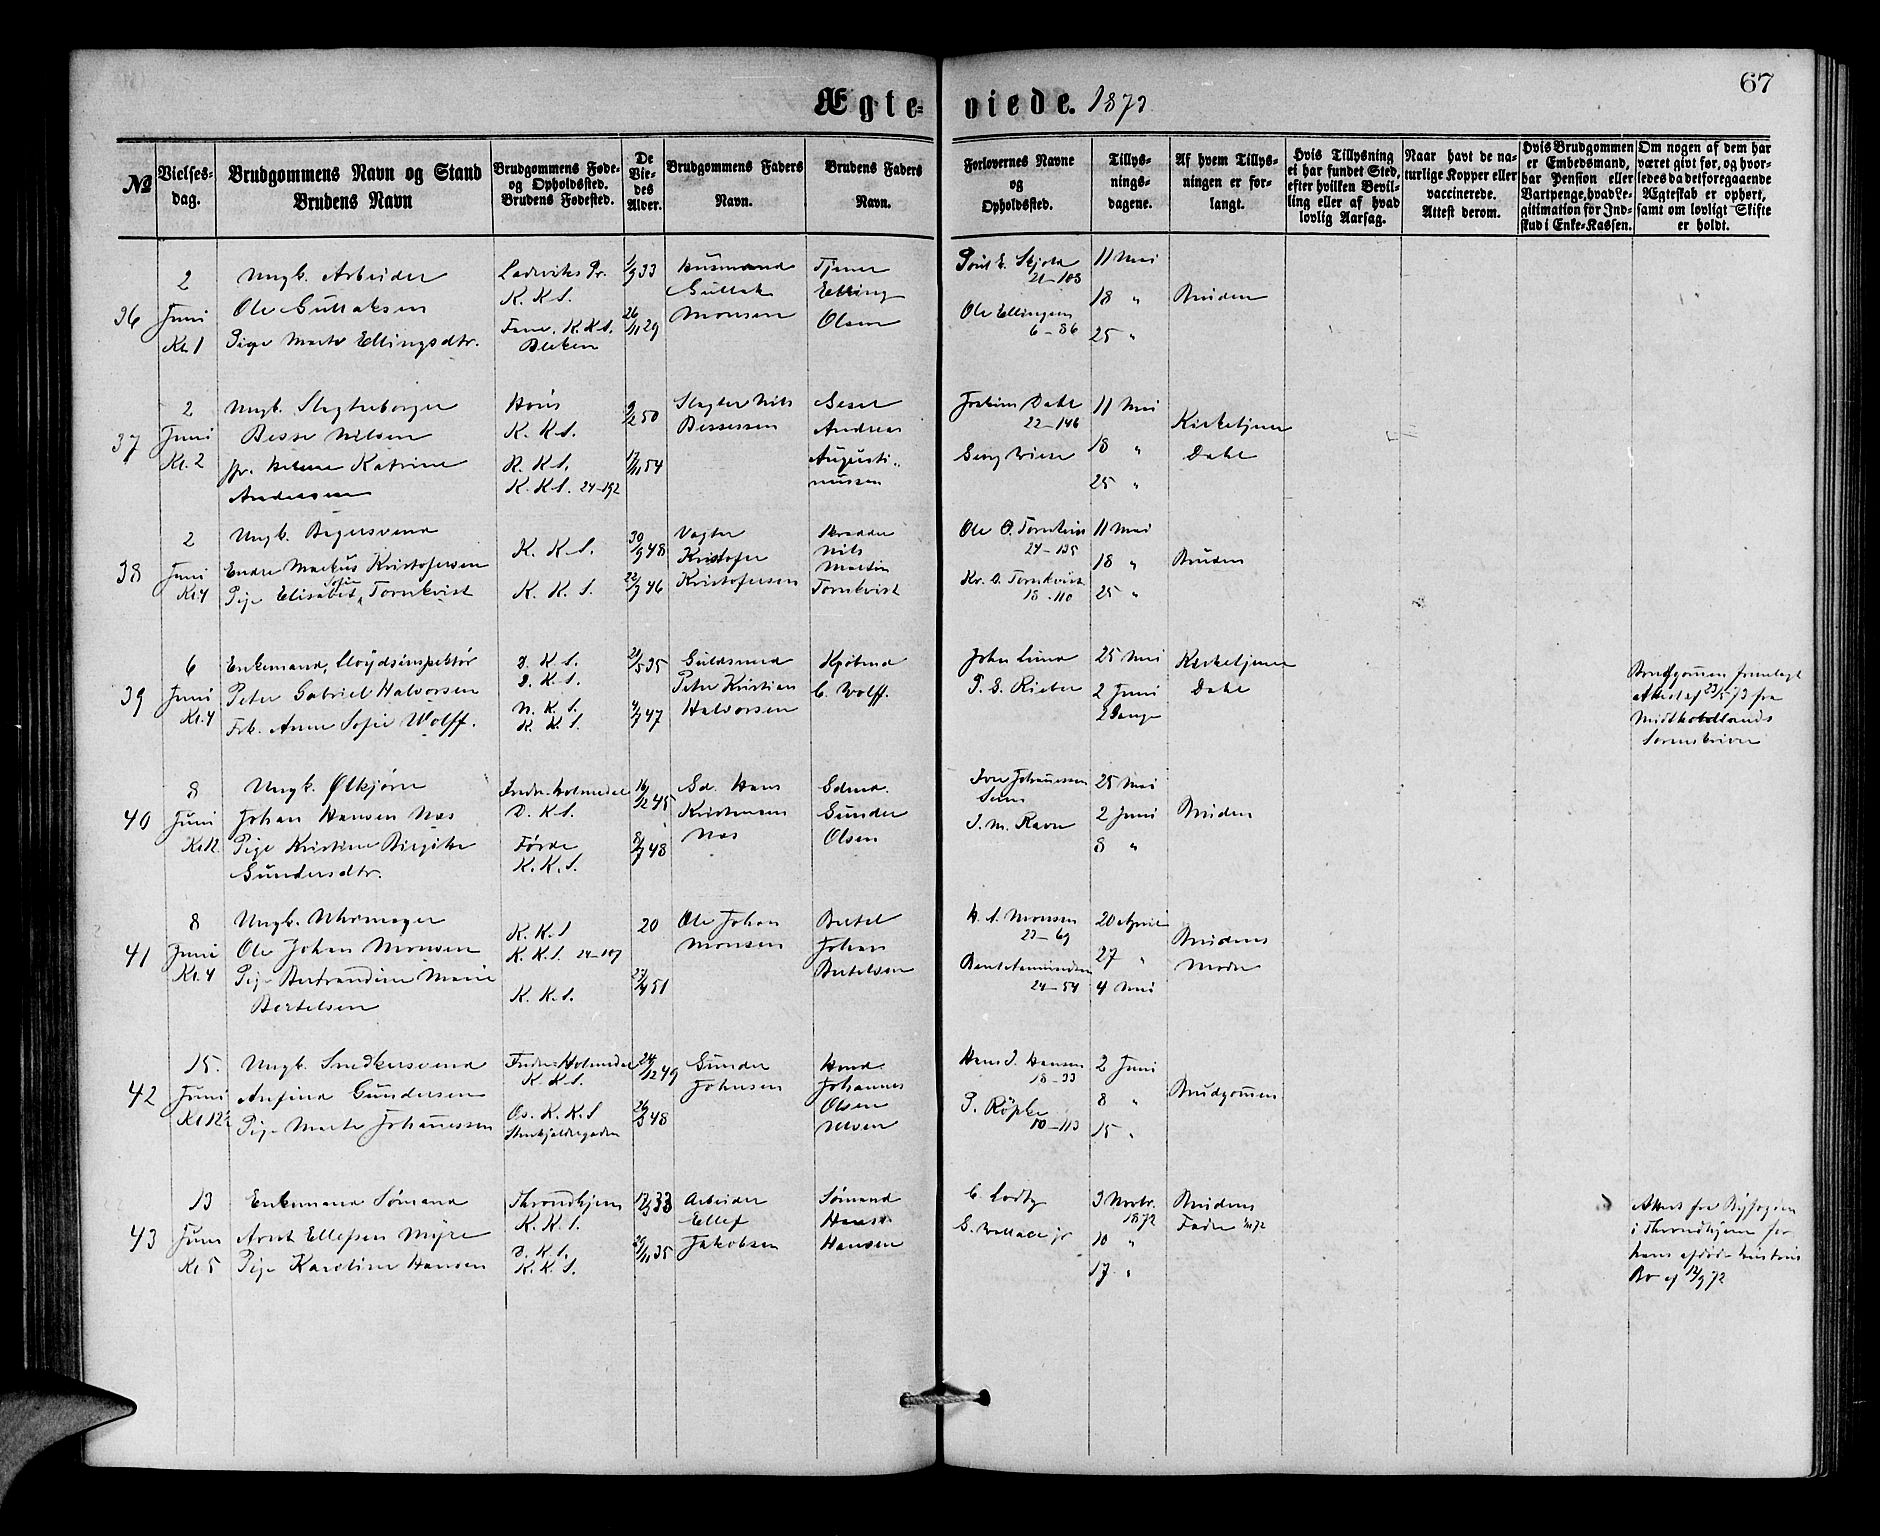 67
Ægte-viede. 1873
№
Vielses-dag.
Brudgommens Navn og Stand
Brudens Navn
Brudgommens Føde- og Opholdssted.
Brudens Fødested.
De Viedes Alder.
Brudgommens Faders Navn.
Brudens Faders Navn.
Forlovernes Navne og Opholdssted.
Tillysnings-dagene.
Af hvem Tillysningen er forlangt.
Hvis Tillysning ei har fundet Sted, efter hvilken Bevilling eller af hvad lovlig Aarsag.
Naar havt de naturlige Kopper eller vaccinerede. Attest derom.
Hvis Brudgommen er Embedsmand, har Pension eller Vartpenge, hvad Legitimation for Indskud i Enke-Kassen.
Om nogen af dem har været givt før, og hvorledes da det foregaaende Ægteskab er ophørt, samt om lovligt Skifte er holdt.
36
2 Juni Kl. 1
Ungk. Arbeider
Ole Gullaksen
Pige Marte Ellingsdtr.
Ladeviks Pr.
K. K. S.
Fane, K.K.S.
1/9 33
26/11 29
Husmand Gullak Monsen
Tjener Elling Olsen
21–103
Ole Ellingsen
6–86
11 Mai
18 "
25 "
Bruden
37
2 Juni Kl. 2
Ungk. Slagterborger
Besse Nilsen
Jfr. Helene Katrine
Andersen
K. K. S.
K. K. S.
K. K. S. 24–192
9/2 50
17/11 54
Slagter Nils Bessesen
Andreas Augustinussen
Joakim Dahl
22–146
Georg Wiese
11 Mai
18 "
25 "
Kirketjener Dahl
38
2 Juni Kl. 4
Ungk. Bagersvend
Endre Markus Kristofersen
Pige Elisabet Sofie Tornkvist
K. K. S.
K. K. S.
30/9 48
22/7 46
Vægter Kristofer Kristofersen
Skrædder Nils Martin Tornkvist
Ole O. Tornkvist
24–135
Kr. O. Tornkvist
18–110
11 Mai
18 "
25 "
Bruden
39
6 Juni Kl. 4
Enkemand, Lloydsinspektør
Peter Gabriel Halvorsen
Frk. Anne Sofie Wolff.
D. K. S.
D. K. S.
N. K. S.
K. K. S.
21/5 35
4/7 47
Guldsmed Peter Kristian Halvorsen
Kjøbmd C. Wolff.
John Lund
P. G. Rieber
25 Mai
2 Juni
2 Gange
Kirketjener Dahl
Brudgommen fremlagt
Attest af 23/5 73 fra
Midthordlands
Sorenskriver
40
8 Juni Kl. 12
Ungk. Ølkjører
Johan Hansen Næs
Pige Kristine Birgitte
Gundersdtr.
Indre-Holmedal
D. K. S.
Førde
K. K. S.
16/12 45
8/7 48
Gd. Hans Kristensen Næs
Gdmd. Gunder Olsen
Iver Johannessen
J. M. Ravn
25 Mai
2 Juni
8 "
Bruden
41
8 Juni Kl. 4
Ungk. Uhrmager
Ole Johan Monsen
Pige Bertrandine Marie
Bertelsen
K. K. S
K. K. S. 24–107
K. K. S.
20
23/4 51
Ole Johan Monsen
Bertel Johan Bertelsen
H. A. Monsen
23–69
Bent Amundsen
24–54
20 April
27 "
4 Mai
Brudens Moder
42
15. Juni Kl. 12½
Ungk. Snedkersvend
Anfind Gundersen
Pige Marte Johannessen
Indre-Holmedal
K. K. S.
Os. K. K. S
Stenkjeldergaden
24/12 49
26/3 48
Gunder Johnsen
Hmd. Johannes Olsen
Hans J. Hansen
18–33
P. Röpke
10–113
2 Juni
8 "
15 "
Brudgommen
43
13 Juni Kl. 5
Enkemand Sømand
Arnt Ellefsen Myre
Pige Karoline Hansen
Throndhjem
K. K. S.
D. K. S.
K. K. S.
17/3 33
29/11 35
Arbeider Ellef Jakobsen
Sømand Hans Hansen
G. Wallace jr.
3 Novbr. 1872
10 "
17 "
Brudens Fader
Attest fra Byfogden
i Throndhjem for
hans afdøde hustrus
Bo af 12/9 72